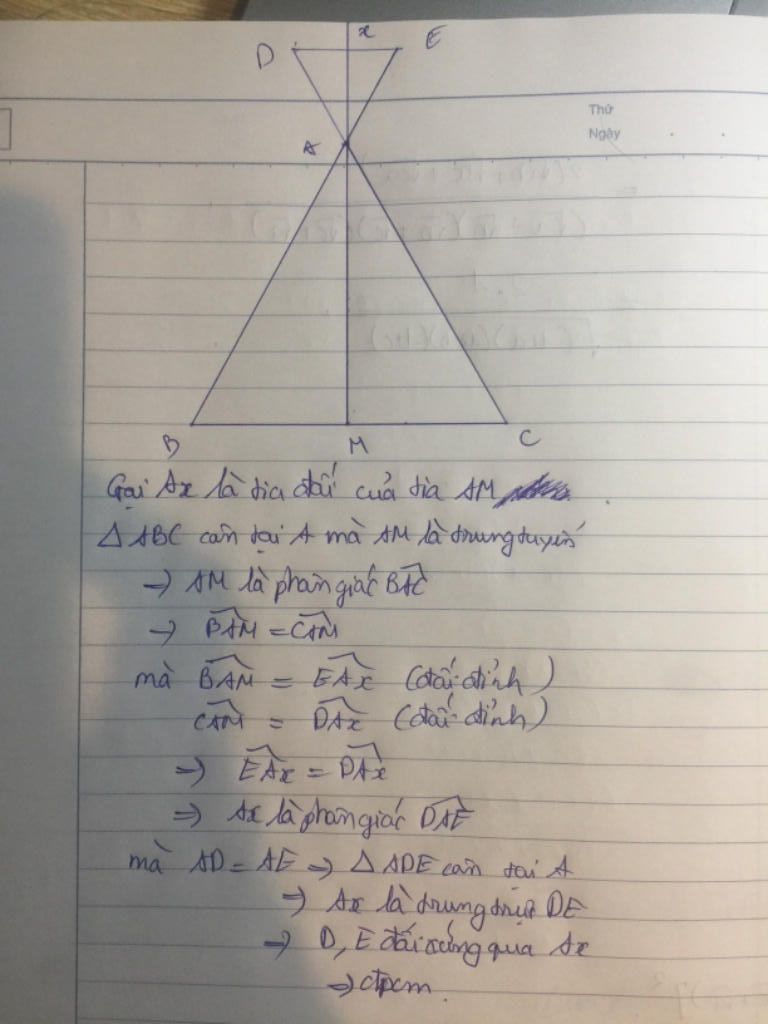 x
D
E
Thứ
Ngày
A
B
M
C
Gọi Ax là tia đối của tia AM
△ABC cân tại A mà AM là trung tuyến
→ AM là phân giác \widehat{BAC}
→ \widehat{BAM} = \widehat{CAM}
mà \widehat{BAM} = \widehat{EAx} (đối đỉnh)
\widehat{CAM} = \widehat{DAx} (đối đỉnh)
⇒ \widehat{EAx} = \widehat{DAx}
⇒ Ax là phân giác \widehat{DAE}
mà AD = AE ⇒ △ADE cân tại A
⇒ Ax là trung trực DE
⇒ D, E đối xứng qua Ax
⇒ đpcm.